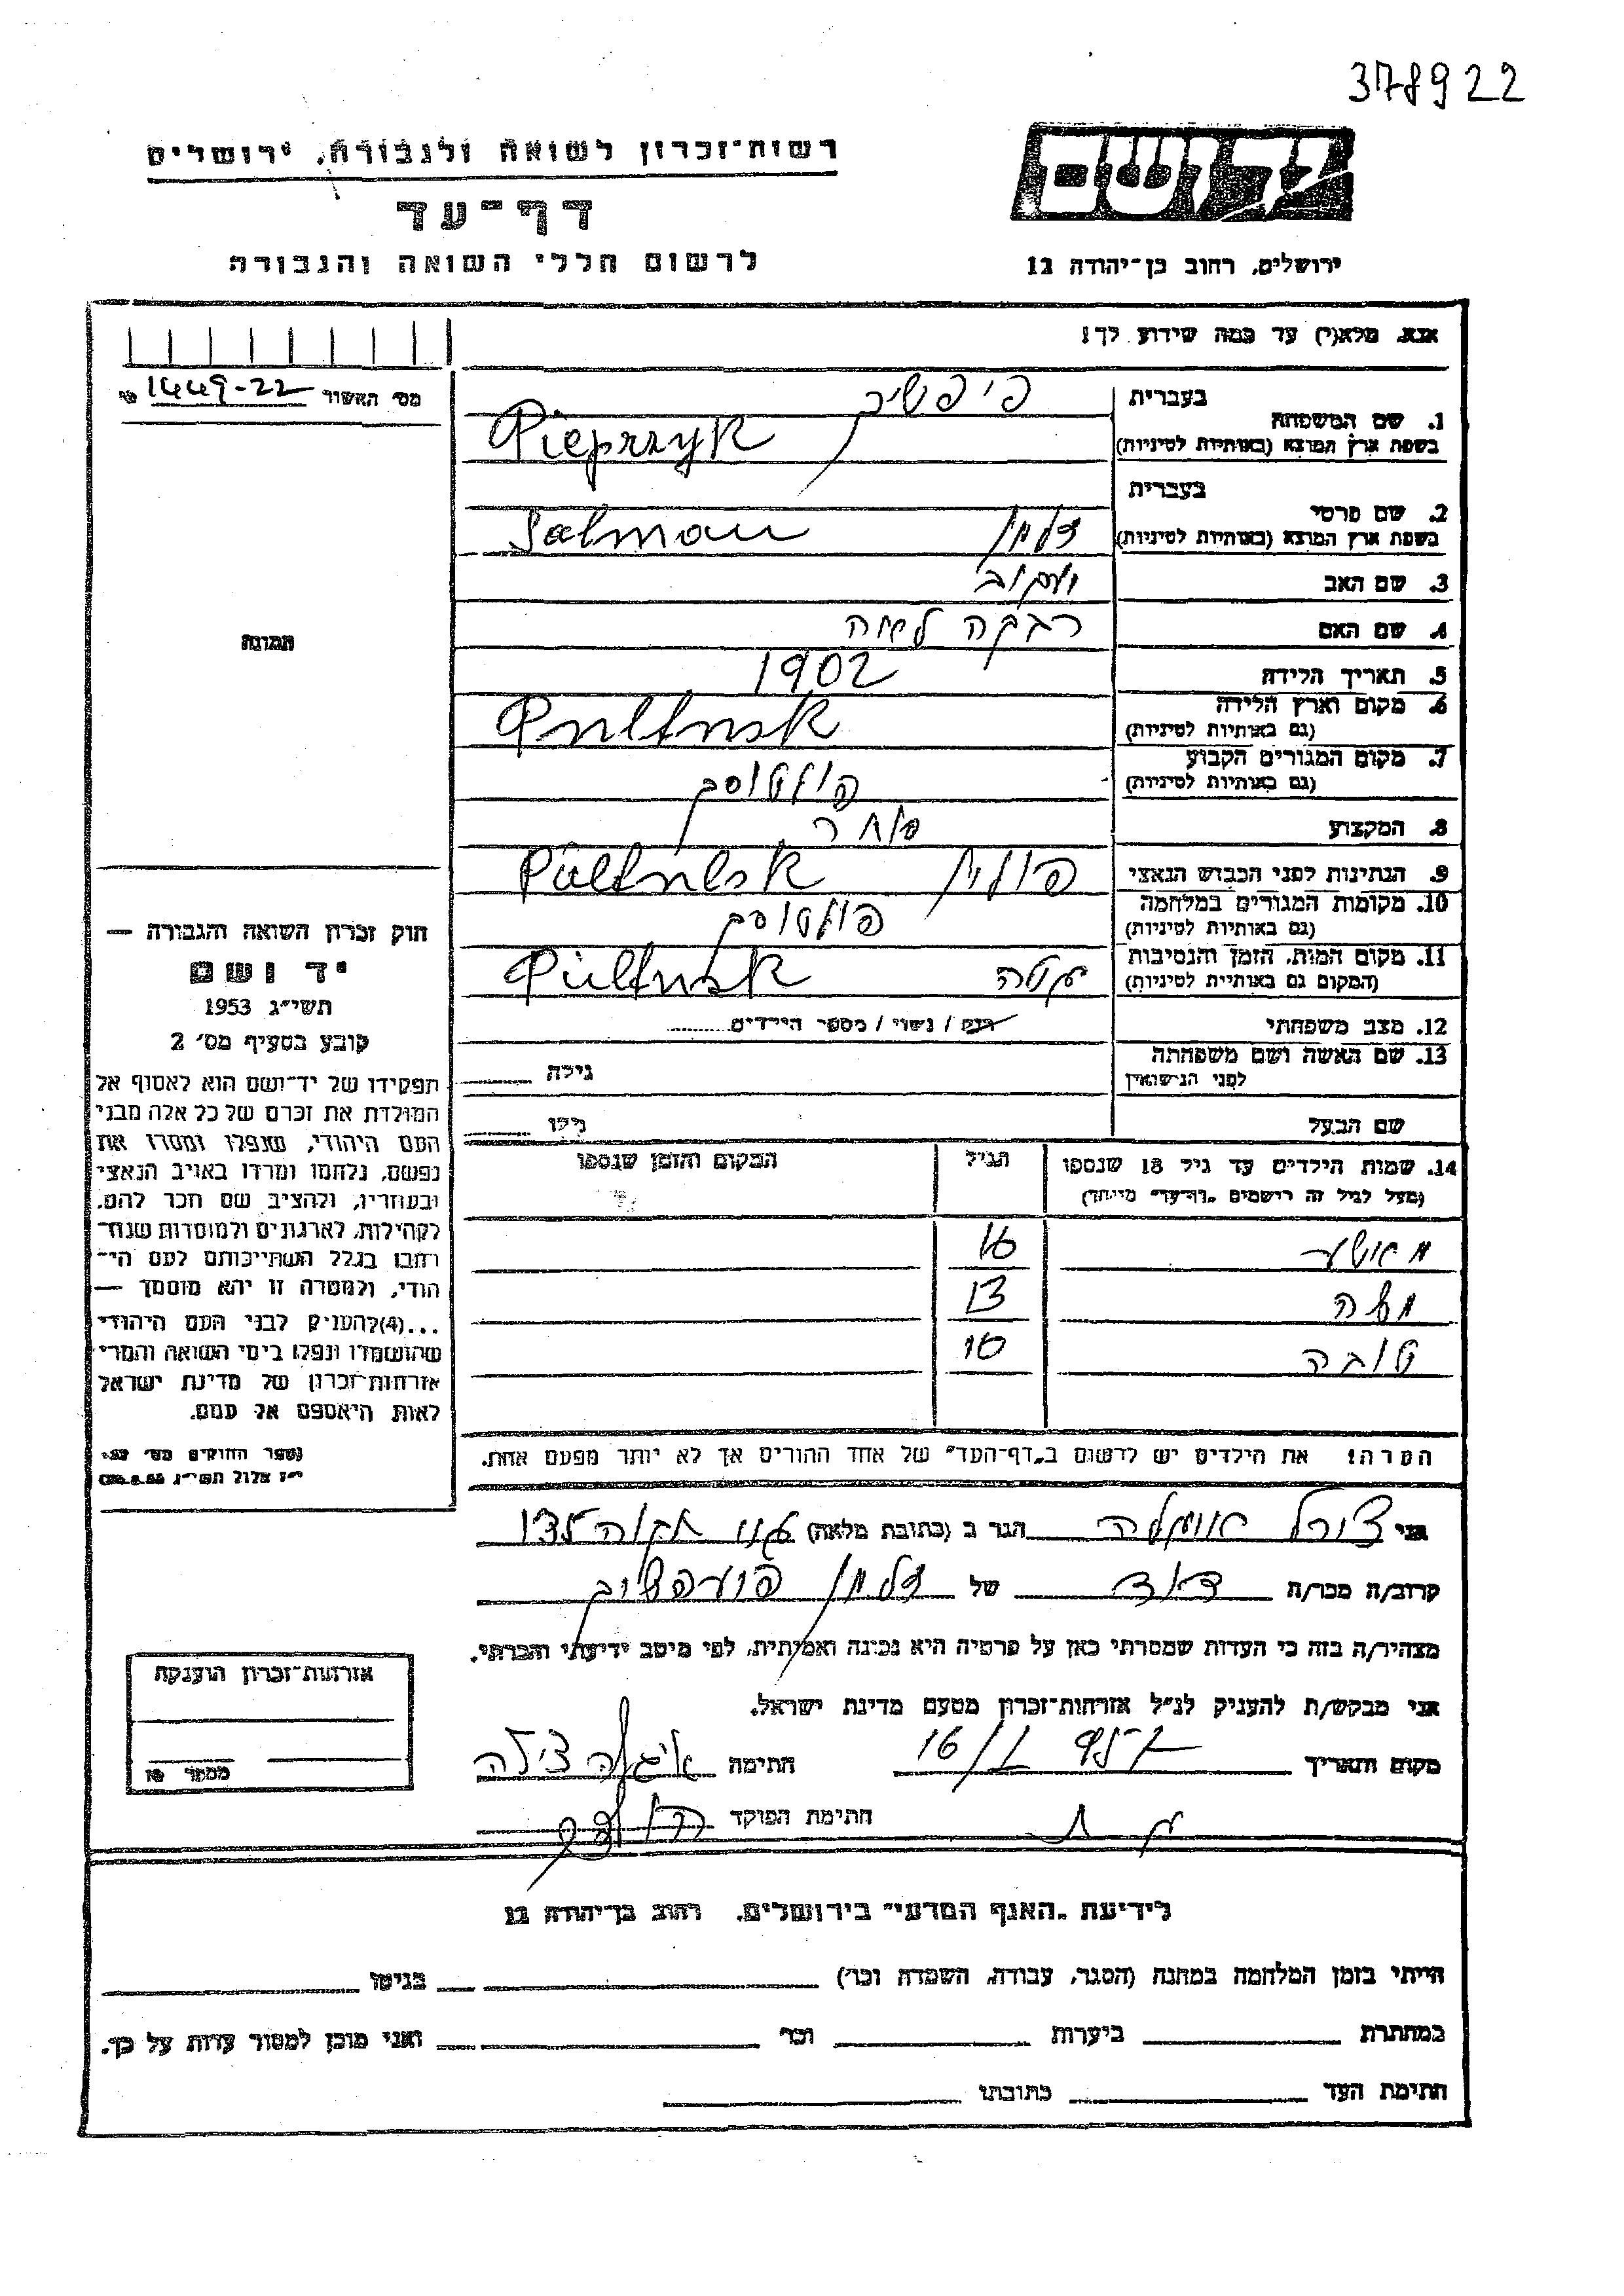 378922
יד ושם
רשות־זכרון לשואה ולגבורה, ירושלים
דף־עד
ירושלים, רחוב בן־יהודה 12
לרשום חללי השואה והגבורה
אנא, מלא(י) עד כמה שידוע לך!
מס' האשור 1449-22
1. שם המשפחה
בעברית
בשפת ארץ המוצא (באותיות לטיניות)
Pieprzyk
2. שם פרטי
בעברית
בשפת ארץ המוצא (באותיות לטיניות)
זלמן Salman
3. שם האב יעקוב
4. שם האם רבקה לאה
5. תאריך הלידה 1902
6. מקום וארץ הלידה
(גם באותיות לטיניות)
Pultusk
7. מקום המגורים הקבוע
(גם באותיות לטיניות)
פולטוסק
8. המקצוע סוחר
9. הנתינות לפני הכבוש הנאצי פולנית Pultusk
10. מקומות המגורים במלחמה
(גם באותיות לטיניות)
פולטוסק
11. מקום המות, הזמן והנסיבות
(המקום גם באותיות לטיניות)
Pultusk
12. מצב משפחתי רווק / נשוי / מספר הילדים
13. שם האשה ושם משפחתה
לפני הנישואין
גילה
שם הבעל גילו
14. שמות הילדים עד גיל 18 שנספו
(מעל לגיל זה רושמים "דף־עד" מיוחד)
הגיל
המקום והזמן שנספו
16
13
טובה 10
הערה: את הילדים יש לרשום ב"דף־העד" של אחד ההורים אך לא יותר מפעם אחת.
תמונה
חוק זכרון השואה והגבורה —
יד ושם
תשי"ג 1953
קובע בסעיף מס' 2
תפקידו של יד־ושם הוא לאסוף אל
המולדת את זכרם של כל אלה מבני
העם היהודי, שנפלו ומסרו את
נפשם, נלחמו ומרדו באויב הנאצי
ובעוזריו, ולהציב שם וזכר להם,
לקהילות, לארגונים ולמוסדות שנח־
רבו בגלל השתייכותם לעם הי־
הודי, ולמטרה זו יהא מוסמך —
...(4) להעניק לבני העם היהודי
שהושמדו ונפלו בימי השואה והמרי
אזרחות־זכרון של מדינת ישראל
לאות היאספם אל עמם.
אני הגר ב (כתובת מלאה)
קרוב/ה מכר/ה דוד של זלמן
מצהיר/ה בזה כי העדות שמסרתי כאן על פרטיה היא נכונה ואמיתית, לפי מיטב ידיעתי והכרתי.
אני מבקש/ת להעניק לנ"ל אזרחות־זכרון מטעם מדינת ישראל.
מקום ותאריך חתימה
חתימת הפוקד
אזרחות־זכרון הוענקה
מספר
לידיעת "האגף המדעי" בירושלים, רחוב בן־יהודה 12
הייתי בזמן המלחמה במחנה (הסגר, עבודה, השמדה וכו') בגיטו
במחתרת ביערות וכו' ואני מוכן למסור עדות על כך.
חתימת העד כתובתו